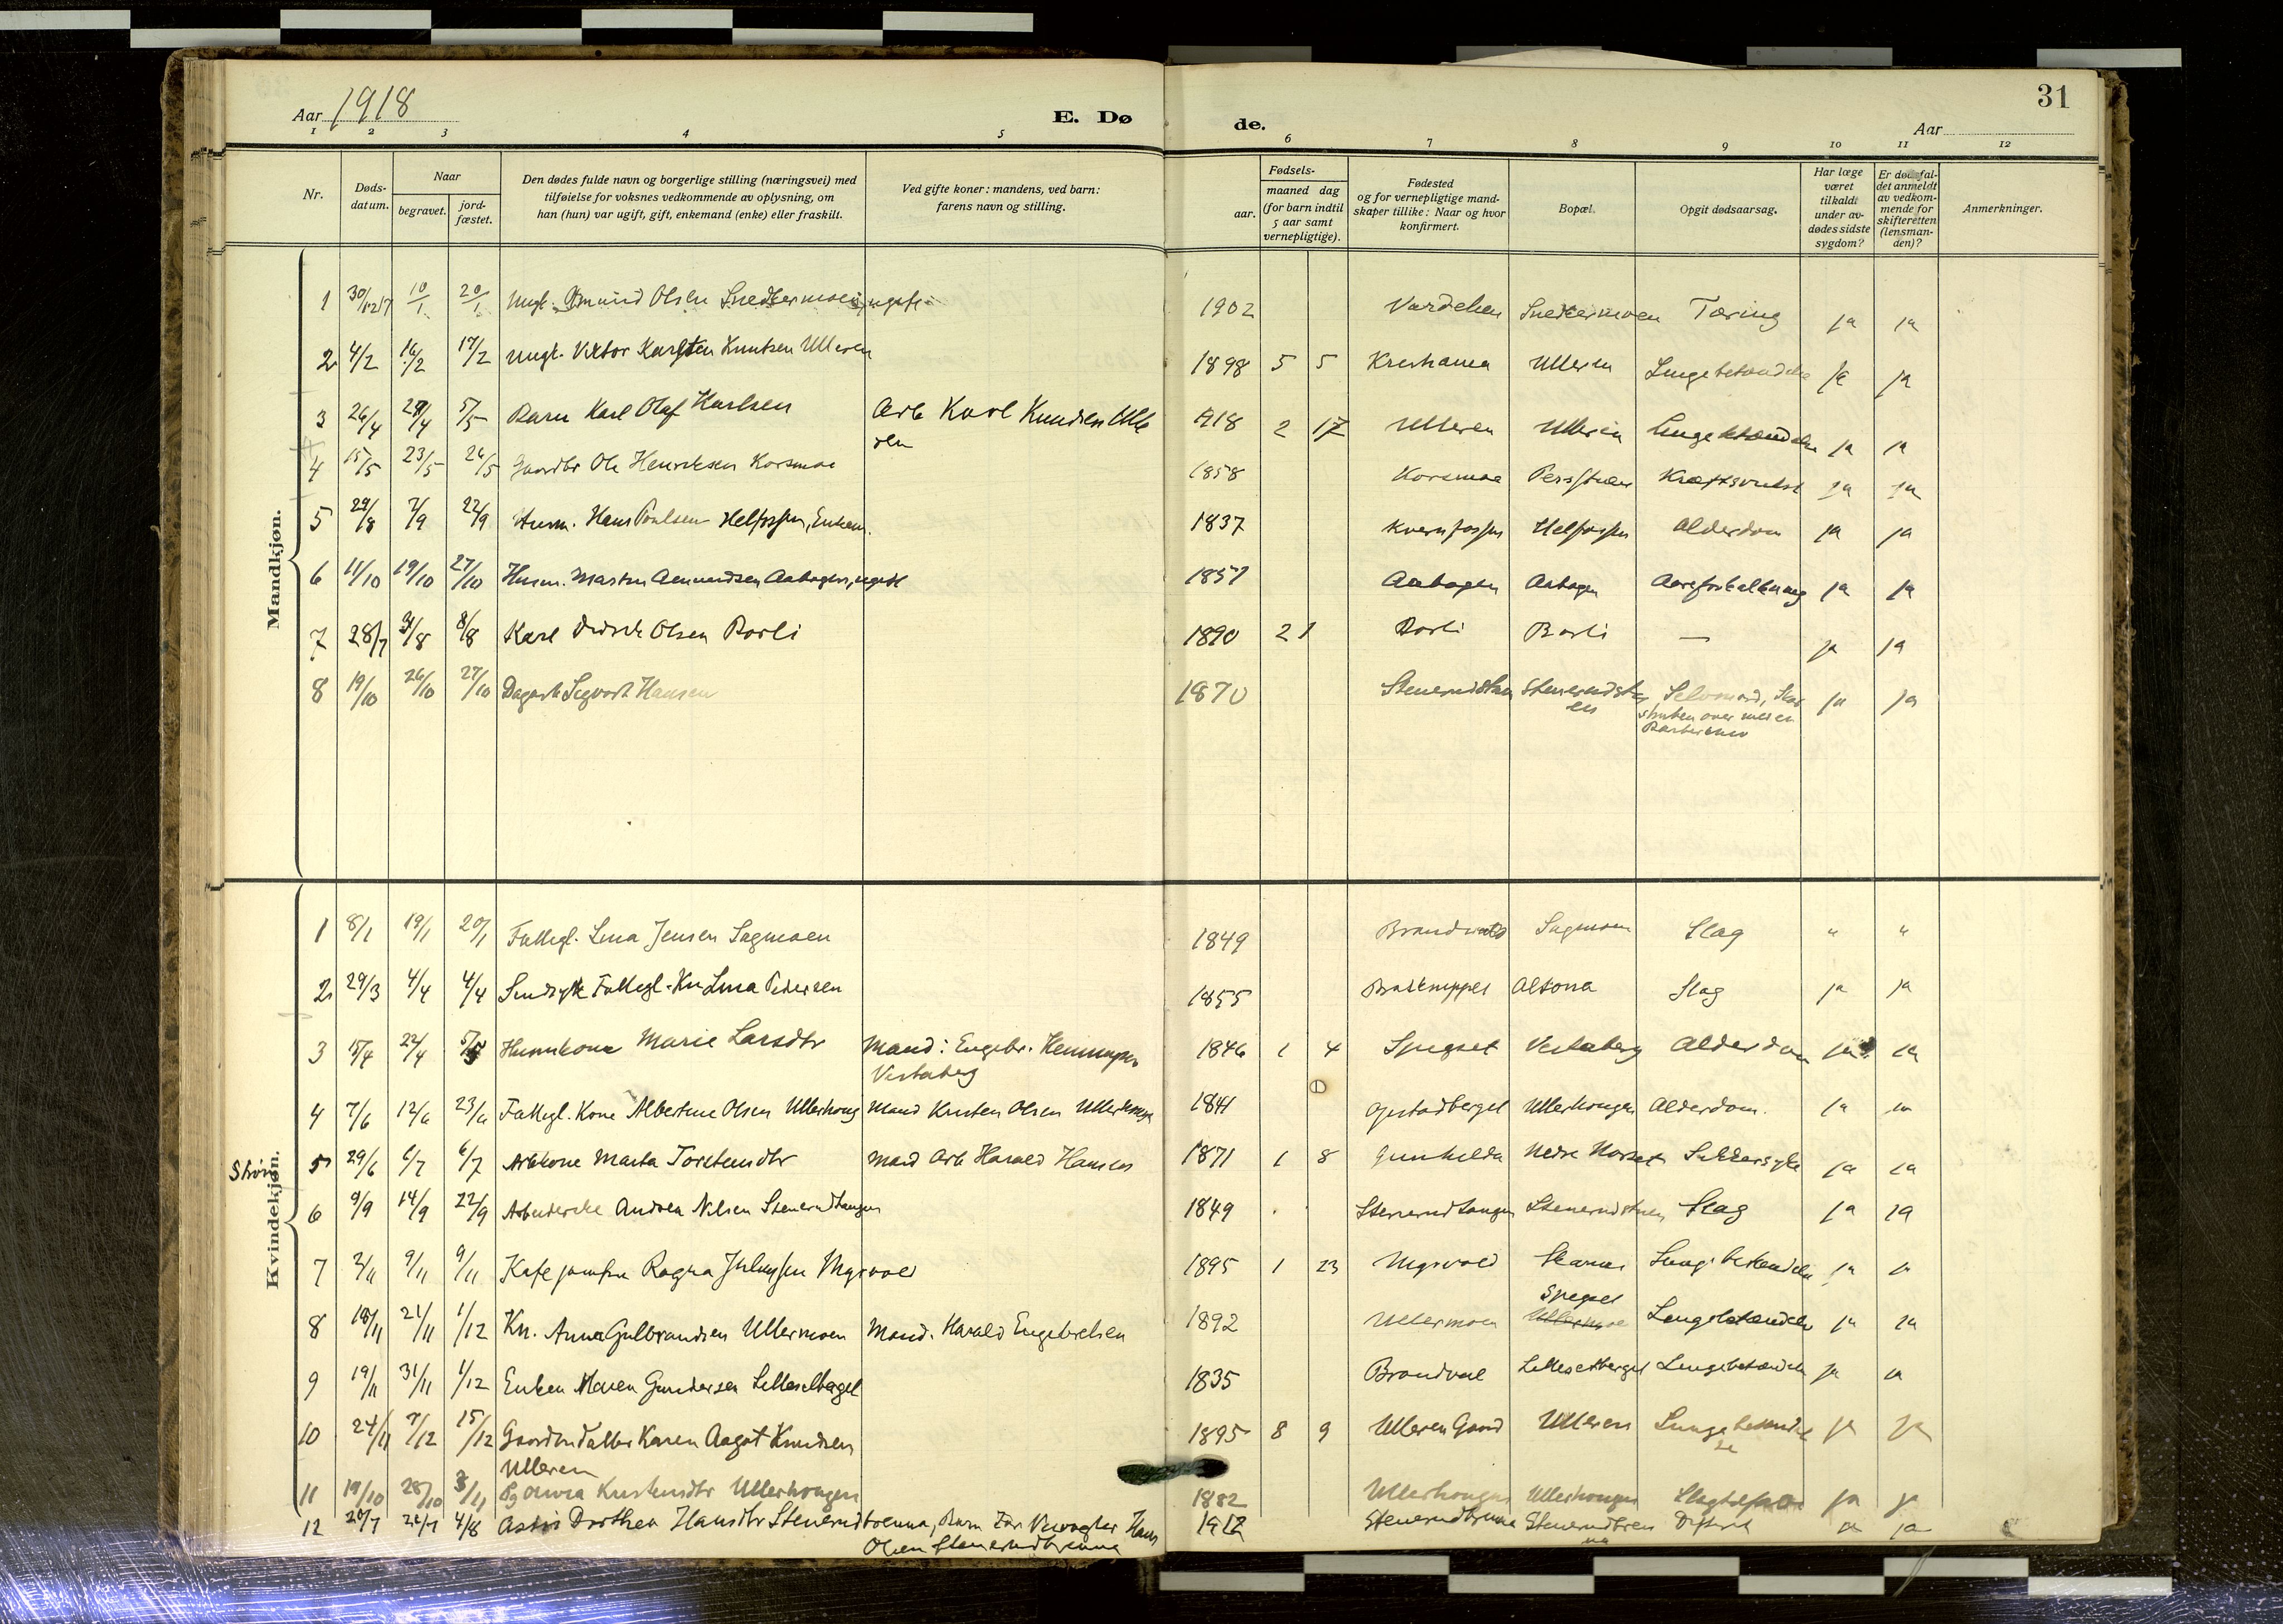 Aar 1918
E. Dø
de.
31
Aar
1 2 3 4 5 6 7 8 9 10 11 12
Nr.
Døds-
datum.
Naar
begravet.
jord-
fæstet.
Den dødes fulde navn og borgerlige stilling (næringsvei) med
tilføielse for voksnes vedkommende av oplysning, om
han (hun) var ugift, gift, enkemand (enke) eller fraskilt.
Ved gifte koner: mandens, ved barn:
farens navn og stilling.
aar.
Fødsels-
maaned dag
(for barn indtil
5 aar samt
vernepligtige).
Fødested
og for vernepligtige mand-
skaper tillike: Naar og hvor
konfirmert.
Bopæl.
Opgit dødsaarsag.
Har læge
været
tilkaldt
under av-
dødes sidste
sygdom?
Er dødsfal-
det anmeldt
av vedkom-
mende for
skifteretten
(lensman-
den)?
Anmerkninger.
Mandkjøn.
1 30/12 17 10/1 20/1 Ungk. Olsen Snedkermoen, ugift 1902 Vardehen Snekermoen Tæring ja ja
2 4/2 16/2 17/2 Ungk. Viktor Karsten Knutsen Ulleren 1898 5 5 Kristiania Ulleren Lungebetændelse ja ja
3 26/4 28/4 5/5 Barn Karl Olaf Karlsen Arb Karl Knudsen Ulle 918 2 17 Ulleren Ulleren Lungebetændelse ja ja
ren
4 15/5 23/5 26/5 Gaardbr Ole Henriksen Korsmoe 1858 Korsmoe Kræftsvulst ja ja
5 29/8 7/9 22/9 Husm. Hans Poulsen Helfossen, Enkem. 1837 Kvernfossen Helfossen Alderdom ja ja
6 11/10 19/10 27/10 Husm. Martin Aamundsen Aabogen, ugift 1857 Aabogen Aabogen Aareforkalkning ja ja
7 28/7 3/8 8/8 Karl Olsen Borli 1890 21 Borli Borli — ja ja
8 19/10 26/10 27/10 Dagarb Sigvart Hansen 1870 Stenerudstuen Stenerudstu Selvmord, Skar
en struben over med en
Barberkniv ja ja
Kvindekjøn.
1 8/1 19/1 20/1 Fattigl. Lina Jensen Sagmoen 1849 Brandvold Sagmoen Slag " "
2 29/3 4/4 4/4 Sindsyk Fattigl. Kn Lina Pedersen 1855 Altona Slag ja ja
3 15/4 22/4 5/5 Husmkone Marie Larsdtr Mand: Engebr. Henningsen 1846 1 4 Spigset Vestaberg Alderdom ja ja
Vestaberg
4 7/6 12/6 23/6 Fattigl. Kone Albertine Olsen Ullerhong Mand Kristen Olsen Ullerhongen 1841 Opstadberget Ullerhongen Alderdom. ja ja
Strøm 5 29/6 6/7 6/7 Arbkone Marta Torstensdtr Mand Arb Harald Hansen 1871 1 8 Gunhilda Nedre Norset Sukkersyke ja ja
6 9/9 14/9 22/9 Arbeiderske Andrea Nilsen Stenerudtangen 1849 Stenerudtangen Stenerudstuen Slag ja ja
7 2/11 9/11 9/11 Kafejomfru Ragna Julussen Mysvold 1895 1 23 Mysvold Skarnes Lungebetændelse ja ja
8 18/11 21/11 1/12 Kn. Anna Gulbrandsen Ullermoen Mand. Harald Engebretsen 1892 Ullermoen Spigset Ullermoe Lungebetændelse ja ja
9 19/11 31/11 1/12 Enken Maren Gundersen Lillesetberget 1835 Brandval Lillesetberget Lungebetændelse ja ja
10 24/11 7/12 15/12 Gaardmdatter Karen Aagot Knudsen 1895 8 9 Ulleren Gaard Ulleren Lungebetændel
Ulleren se ja ja
11 19/10 28/10 3/11 Pg Olivia Kristensdtr Ullerhongen 1882 Ullerhongen Ullerhongen Slagtilfælde ja ja
12 20/7 26/7 4/8 Astri Dorthea Hansdtr Stenerudbrenna, Barn Far: Hans 1917 Stenerudbrenna Stenerudbren Difterit ja ja
Olsen Stenerudbrenna na